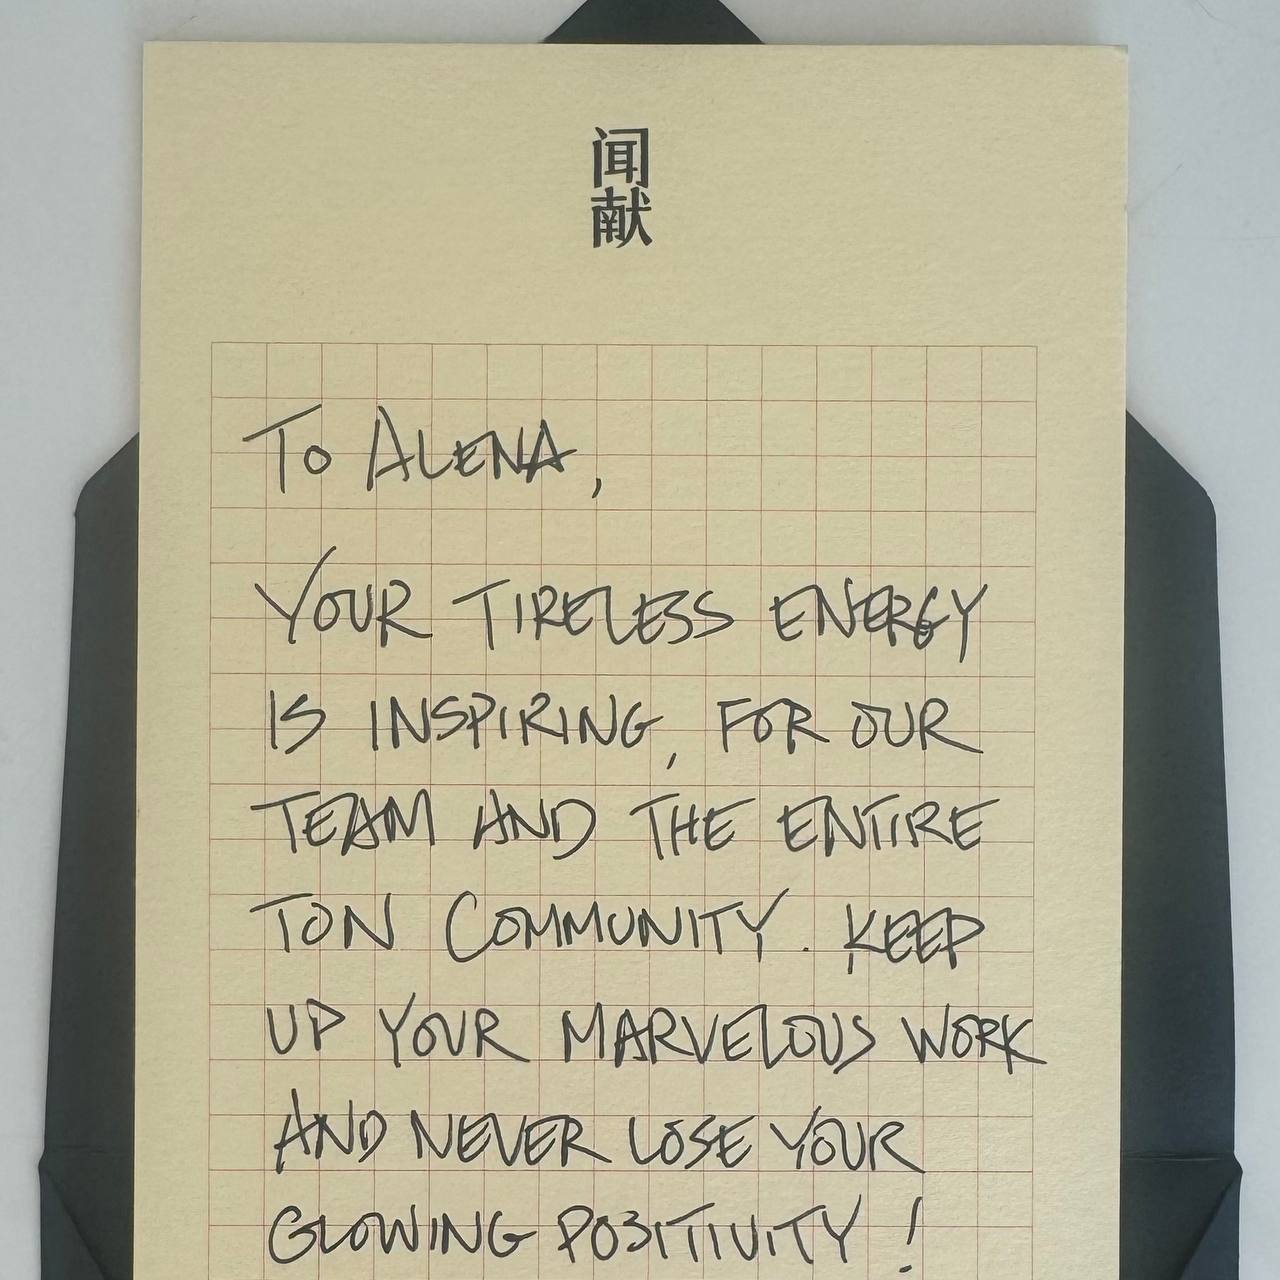 闻献
TO ALENA,
YOUR TIRELESS ENERGY
IS INSPIRING, FOR OUR
TEAM AND THE ENTIRE
TON COMMUNITY. KEEP
UP YOUR MARVELOUS WORK
AND NEVER LOSE YOUR
GLOWING POSITIVITY!